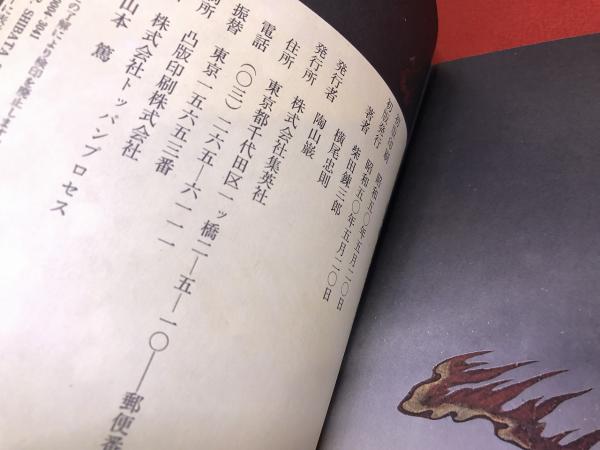 初版印刷 昭和五〇年五月二〇日
初版発行 昭和五〇年五月二〇日
著者 柴田錬三郎
横尾忠則
発行者 陶山巌
発行所 株式会社集英社
住所 東京都千代田区一ッ橋二—五—一〇—郵便番
電話 (〇三)二六五—六一一一
振替 東京一五六五三番
刷所 凸版印刷株式会社
株式会社トッパンプロセス
山本 篤
の了解により検印を廃止します
3041
SHIBATA